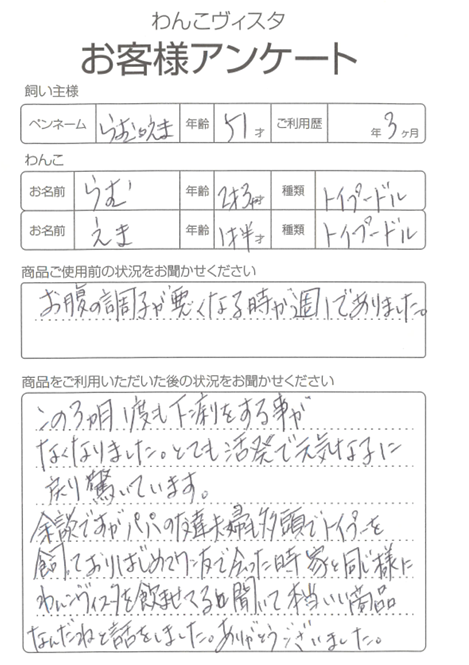 わんこヴィスタ
お客様アンケート
飼い主様
ペンネーム らむ えま 年齢 51 才 ご利用歴 年 3 ヶ月
わんこ
お名前 らむ 年齢 2才3ヶ月 種類 トイプードル
お名前 えま 年齢 1才半 才 種類 トイプードル
商品ご使用前の状況をお聞かせください
お腹の調子が悪くなる時が週1でありました。
商品をご利用いただいた後の状況をお聞かせください
この3カ月1度も下痢をする事が
なくなりました。とても活発で元気な子に
戻り驚いています。
余談ですがパパの友達夫婦も多頭でトイプーを
飼っておりはじめてワン友で会った時 家と同じ様に
わんこヴィスタを飲ませてると聞いて本当いい商品
なんだねと話をしました。ありがとうございました。